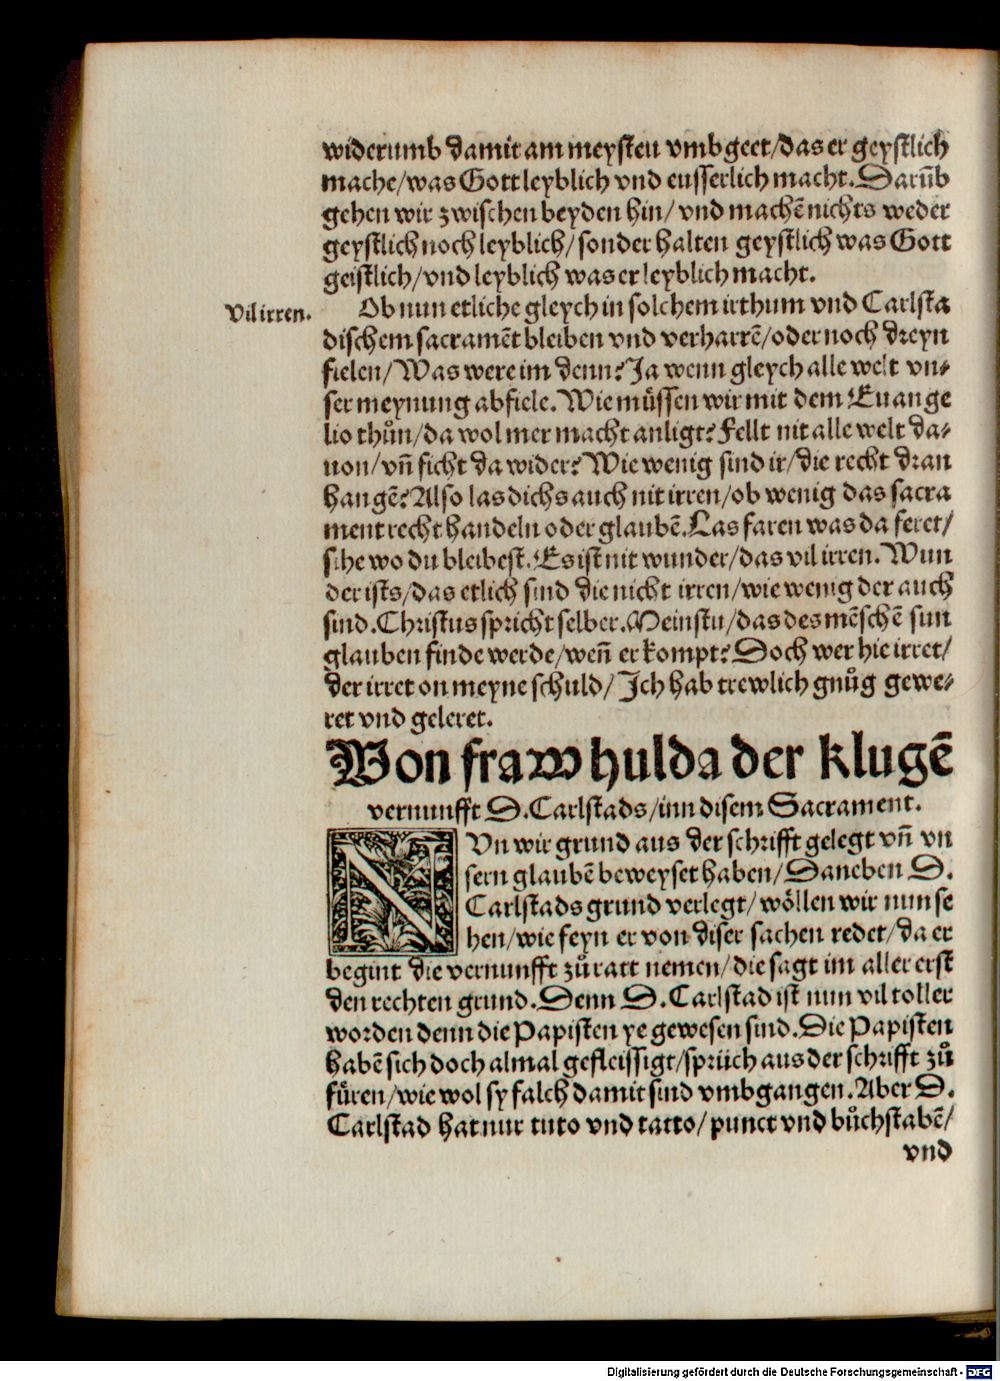 widerumb damit am meysten vmbgeet/das er geystlich
mache/was Gott leyblich vnd eusserlich macht. Darūb
gehen wir zwischen beyden hin/ vnd machē nichts weder
geystlich noch leyblich/ sonder halten geystlich was Gott
geistlich/vnd leyblich was er leyblich macht.
Vil irren.
Ob nun etliche gleych in solchem irthum vnd Carlsta
dischem sacramēt bleiben vnd verharrē/oder noch dreyn
fielen/Was were im denn? Ja wenn gleych alle welt vn⸗
ser meynung abfiele. Wie müssen wir mit dem Euange
lio thůn/da wol mer macht anligt? Fellt nit alle welt da⸗
uon/vn̄ ficht da wider? Wie wenig sind ir/die recht dran
hangē? Also las dichs auch nit irren/ob wenig das sacra
ment recht handeln oder glaubē. Las faren was da feret/
sihe wo du bleibest. Es ist nit wunder/das vil irren. Wun
der ists/das etlich sind die nicht irren/wie wenig der auch
sind. Christus spricht selber. Meinstu/das des mēschē sun
glauben finde werde/wen̄ er kompt? Doch wer hie irret/
der irret on meyne schuld/ Ich hab trewlich gnůg gewe⸗
ret vnd geleret.
Von fraw hulda der klugē
vernunfft D. Carlstads/inn disem Sacrament.
NVn wir grund aus der schrifft gelegt vn̄ vn
sern glaubē beweyset haben/Daneben D.
Carlstads grund verlegt/ wöllen wir nun se
hen/wie feyn er von diser sachen redet/da er
begint die vernunfft zů ratt nemen/die sagt im aller erst
den rechten grund. Denn D. Carlstad ist nun vil toller
worden denn die Papisten ye gewesen sind. Die Papisten
habē sich doch almal gefleissigt/sprüch aus der schrifft zů
füren/wie wol sy falch damit sind vmbgangen. Aber D.
Carlstad hat nur tuto vnd tatto/ punct vnd bůchstabē/
vnd
Digitalisierung gefördert durch die Deutsche Forschungsgemeinschaft - DFG